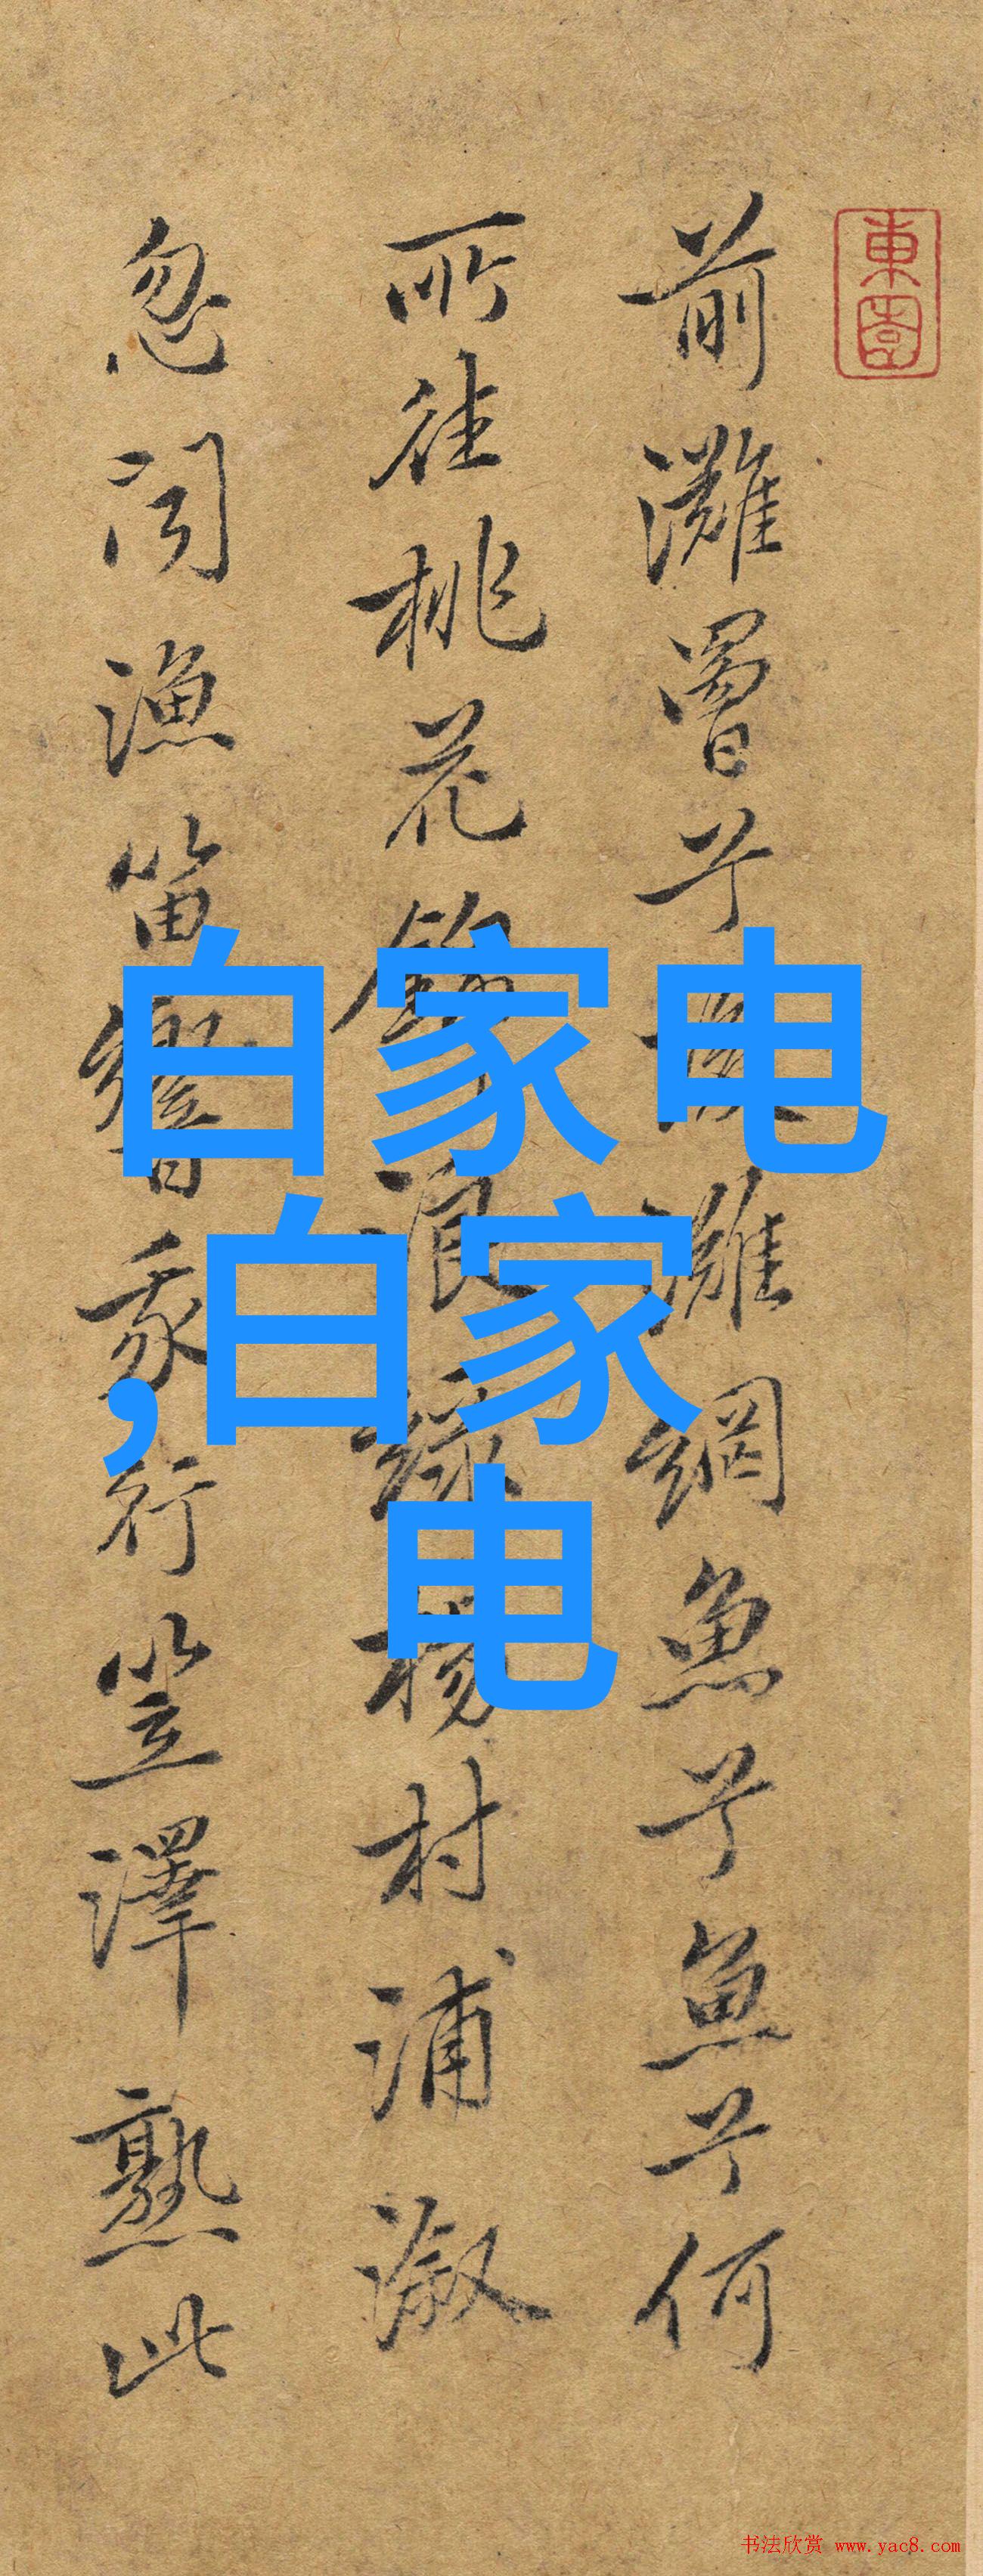 東園
前灘罾兮灘網魚兮魚兮何
所往桃花錦浪綠楊村浦溆
忽聞漁笛響我行笠澤熟此
白家电
,白家
电
书法欣赏 www.yac8.com